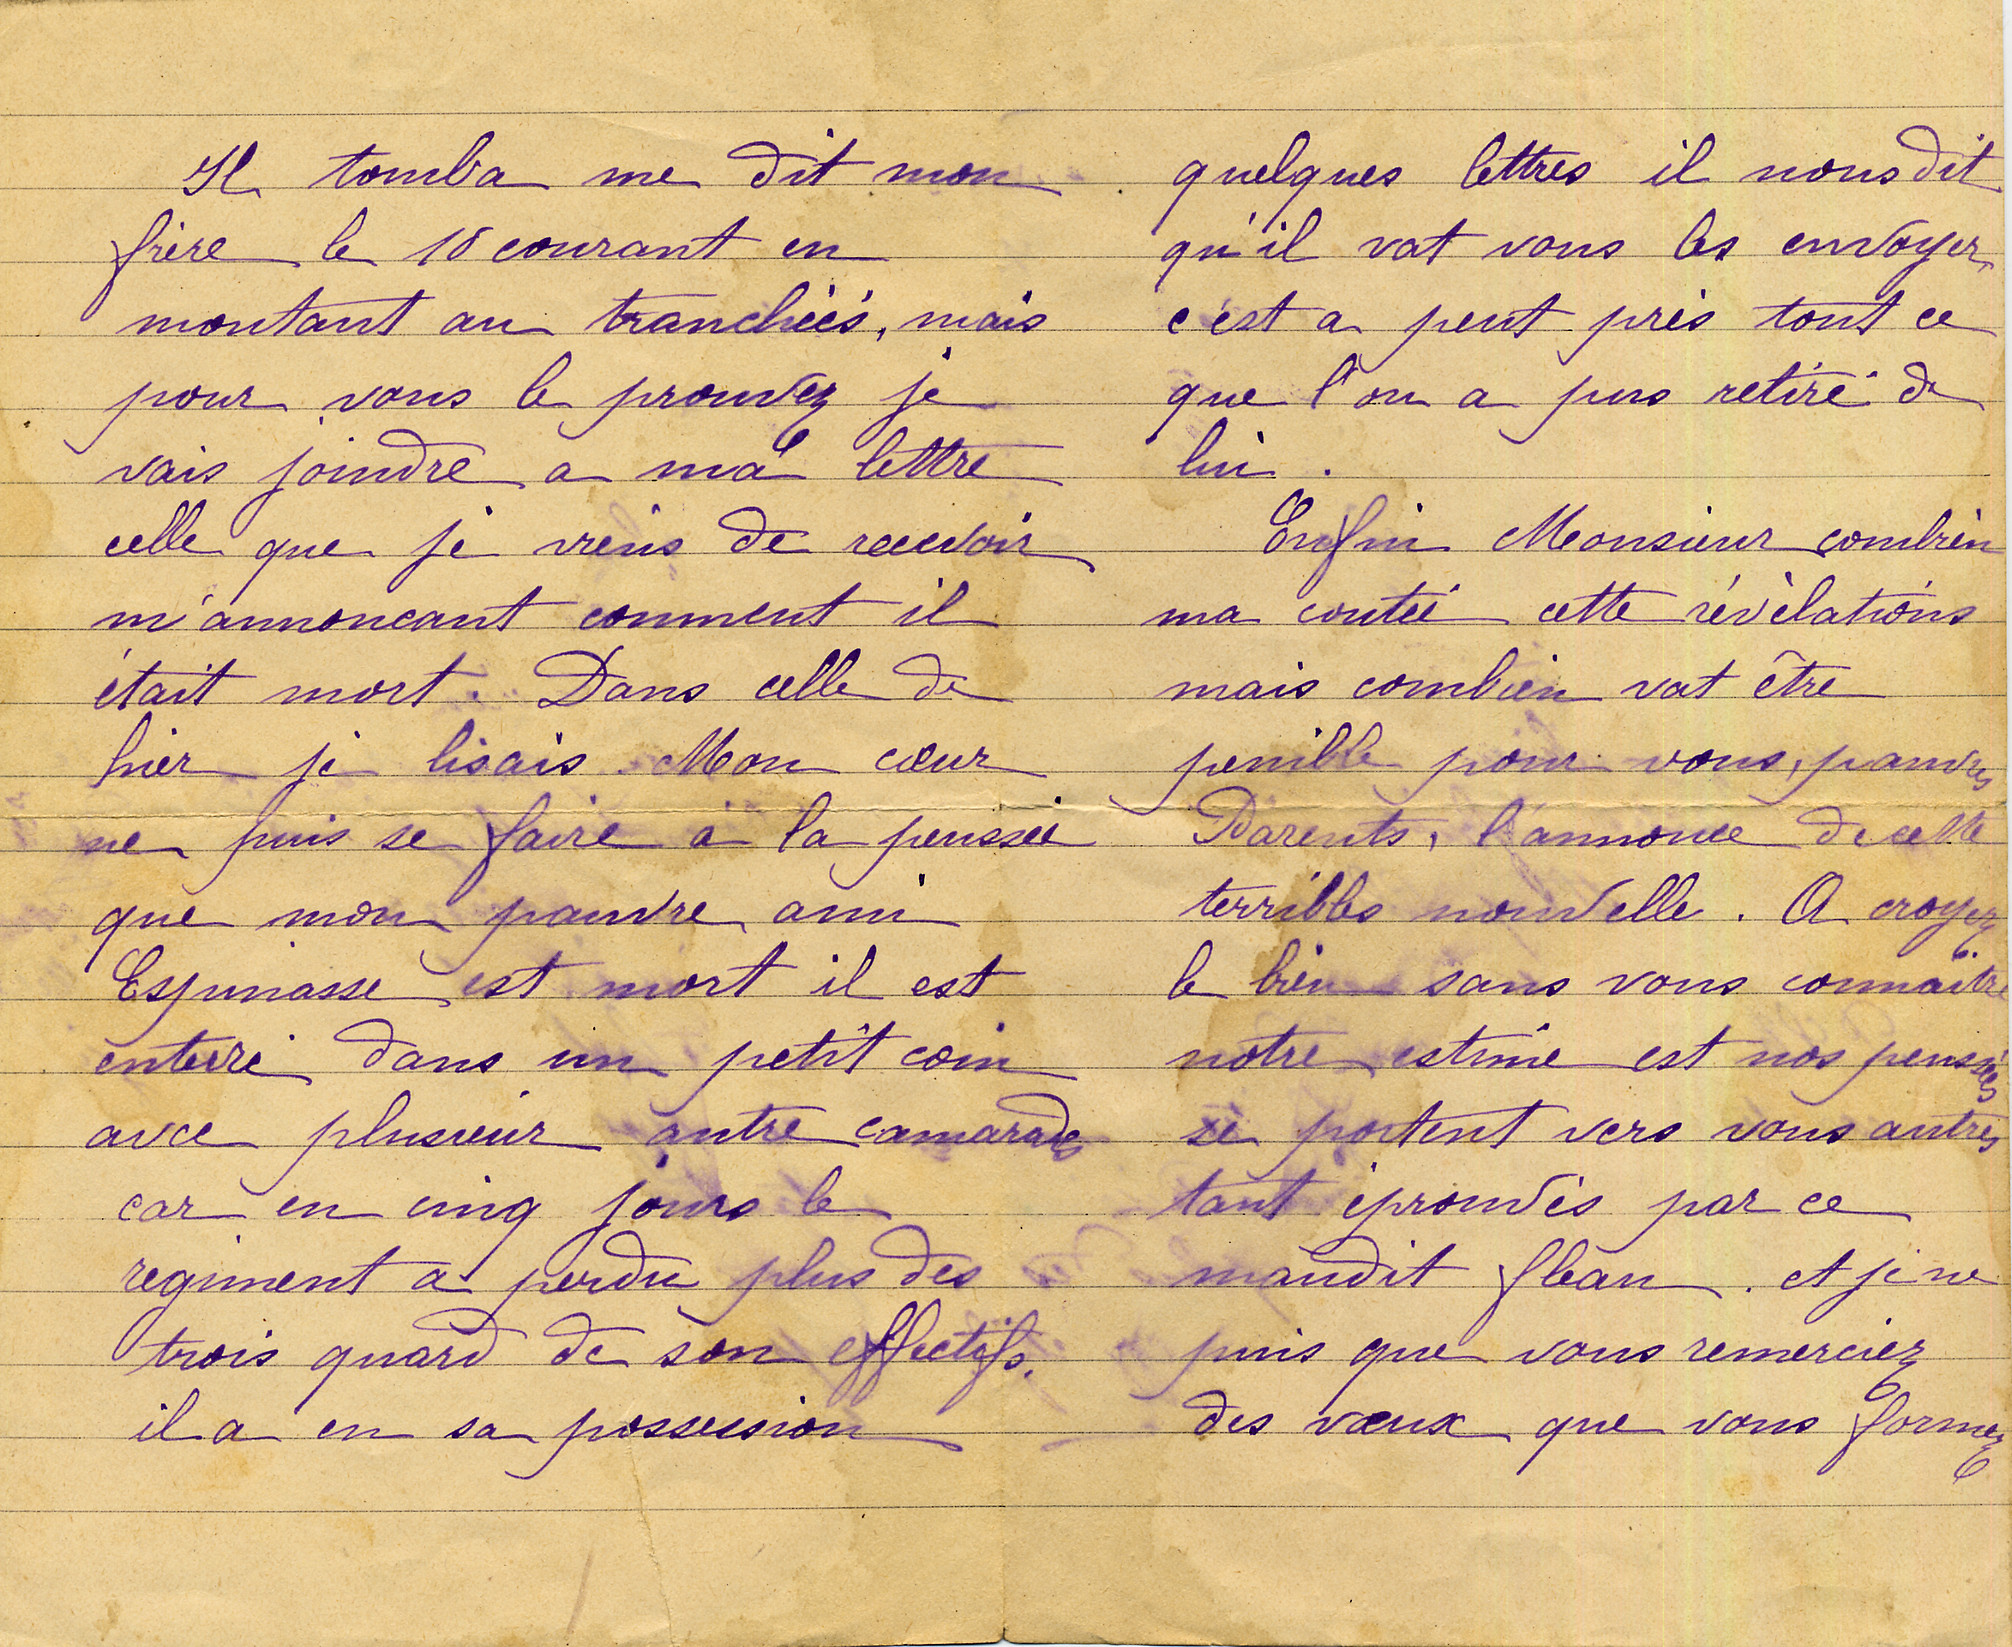 Il tomba me dit mon
frère le 18 courant en
montant au tranchéés, mais
pour vous le prouvez je
vais joindre a ma lettre
celle que je viens de recevoir
m'annoncant comment il
était mort. Dans celle de
hier je lisais. Mon cœur
ne puis se faire à la penssée
que mon pauvre ami
Espinasse est mort il est
enterré dans un petit coin
avec plusieur autre camarades
car en cinq jours le
regiment a perdu plus des
trois quard de son effectifs.
il a en sa possession
quelques lettres il nous dit
qu'il vat vous les envoyer,
c'est a peut près tout ce
que l'on a pus retiré de
lui.
Enfin Monsieur combien
ma coutée cette révélations
mais combien vat être
penible pour vous, pauvres
Parents, l'annonce de cette
terribles nouvelle. A croyez
le bien sans vous connaître
notre estime est nos pensées
se portent vers vous autres
tant éprouvés par ce
maudit fléau. et je ne
puis que vous remerciez
des vœux que vous formez